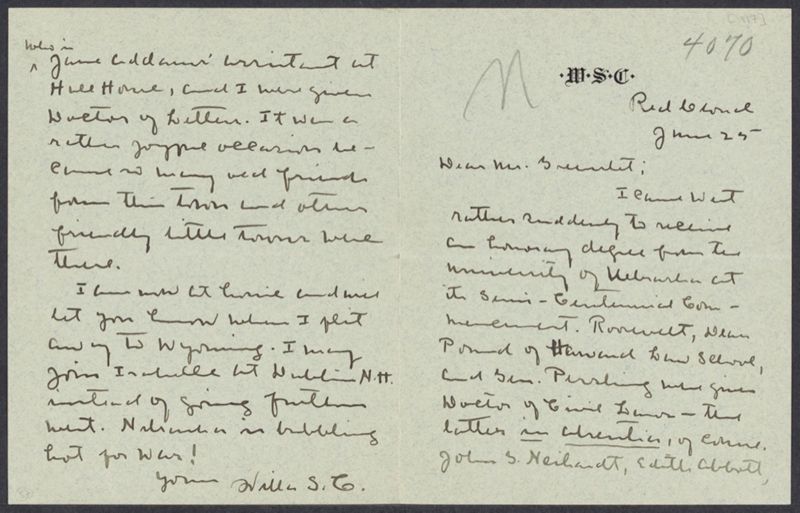 [117]
4070
N
·W·S·C·
Red Cloud
June 25
Dear Mr. Greenslet;
I came West
rather suddenly to receive
an honorary degree from the
University of Nebraska at
its Semi-Centennial Com-
mencement. Roosevelt, Dean
Pound of Harvard Law School,
and Gen. Pershing were given
Doctor of Civil Laws — the
latter in absentia, of course.
John G. Neihardt, Edith Abbott,
who is
^ Jane Addams' assistant at
Hull House, and I were given
Doctor of Letters. It was a
rather joyful occasion be-
cause so many old friends
from this town and other
friendly little towns were
there.
I am now at home and will
let you know when I flit
away to Wyoming. I may
join Isabelle at Dublin N.H.
instead of going further
west. Nebraska is bubbling
hot for war!
Yours
Willa S. C.